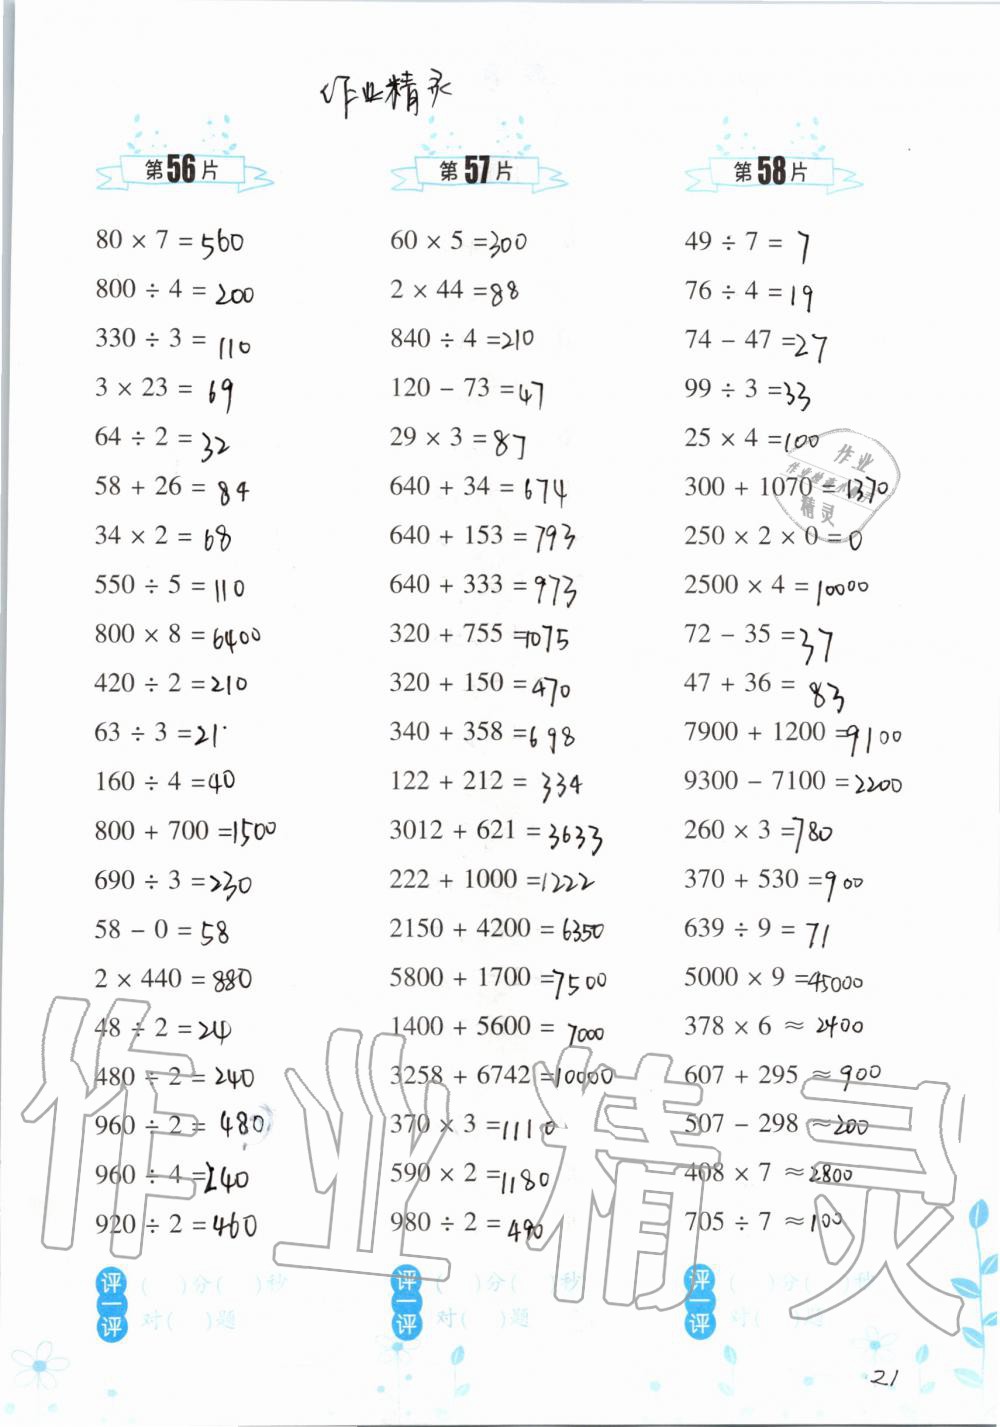 作业精灵
第56片
80 × 7 = 560
800 ÷ 4 = 200
330 ÷ 3 = 110
3 × 23 = 69
64 ÷ 2 = 32
58 + 26 = 84
34 × 2 = 68
550 ÷ 5 = 110
800 × 8 = 6400
420 ÷ 2 = 210
63 ÷ 3 = 21
160 ÷ 4 = 40
800 + 700 = 1500
690 ÷ 3 = 230
58 - 0 = 58
2 × 440 = 880
48 ÷ 2 = 24
480 ÷ 2 = 240
960 ÷ 2 = 480
960 ÷ 4 = 240
920 ÷ 2 = 460
评一评
( )分( )秒
对( )题
第57片
60 × 5 = 300
2 × 44 = 88
840 ÷ 4 = 210
120 - 73 = 47
29 × 3 = 87
640 + 34 = 674
640 + 153 = 793
640 + 333 = 973
320 + 755 = 1075
320 + 150 = 470
340 + 358 = 698
122 + 212 = 334
3012 + 621 = 3633
222 + 1000 = 1222
2150 + 4200 = 6350
5800 + 1700 = 7500
1400 + 5600 = 7000
3258 + 6742 = 10000
370 × 3 = 1110
590 × 2 = 1180
980 ÷ 2 = 490
评一评
( )分( )秒
对( )题
第58片
49 ÷ 7 = 7
76 ÷ 4 = 19
74 - 47 = 27
99 ÷ 3 = 33
25 × 4 = 100
300 + 1070 = 1370
250 × 2 × 0 = 0
2500 × 4 = 10000
72 - 35 = 37
47 + 36 = 83
7900 + 1200 = 9100
9300 - 7100 = 2200
260 × 3 = 780
370 + 530 = 900
639 ÷ 9 = 71
5000 × 9 = 45000
378 × 6 ≈ 2400
607 + 295 ≈ 900
507 - 298 ≈ 200
408 × 7 ≈ 2800
705 ÷ 7 ≈ 100
评一评
( )分( )秒
对( )题
作业
精灵
作业精灵
21